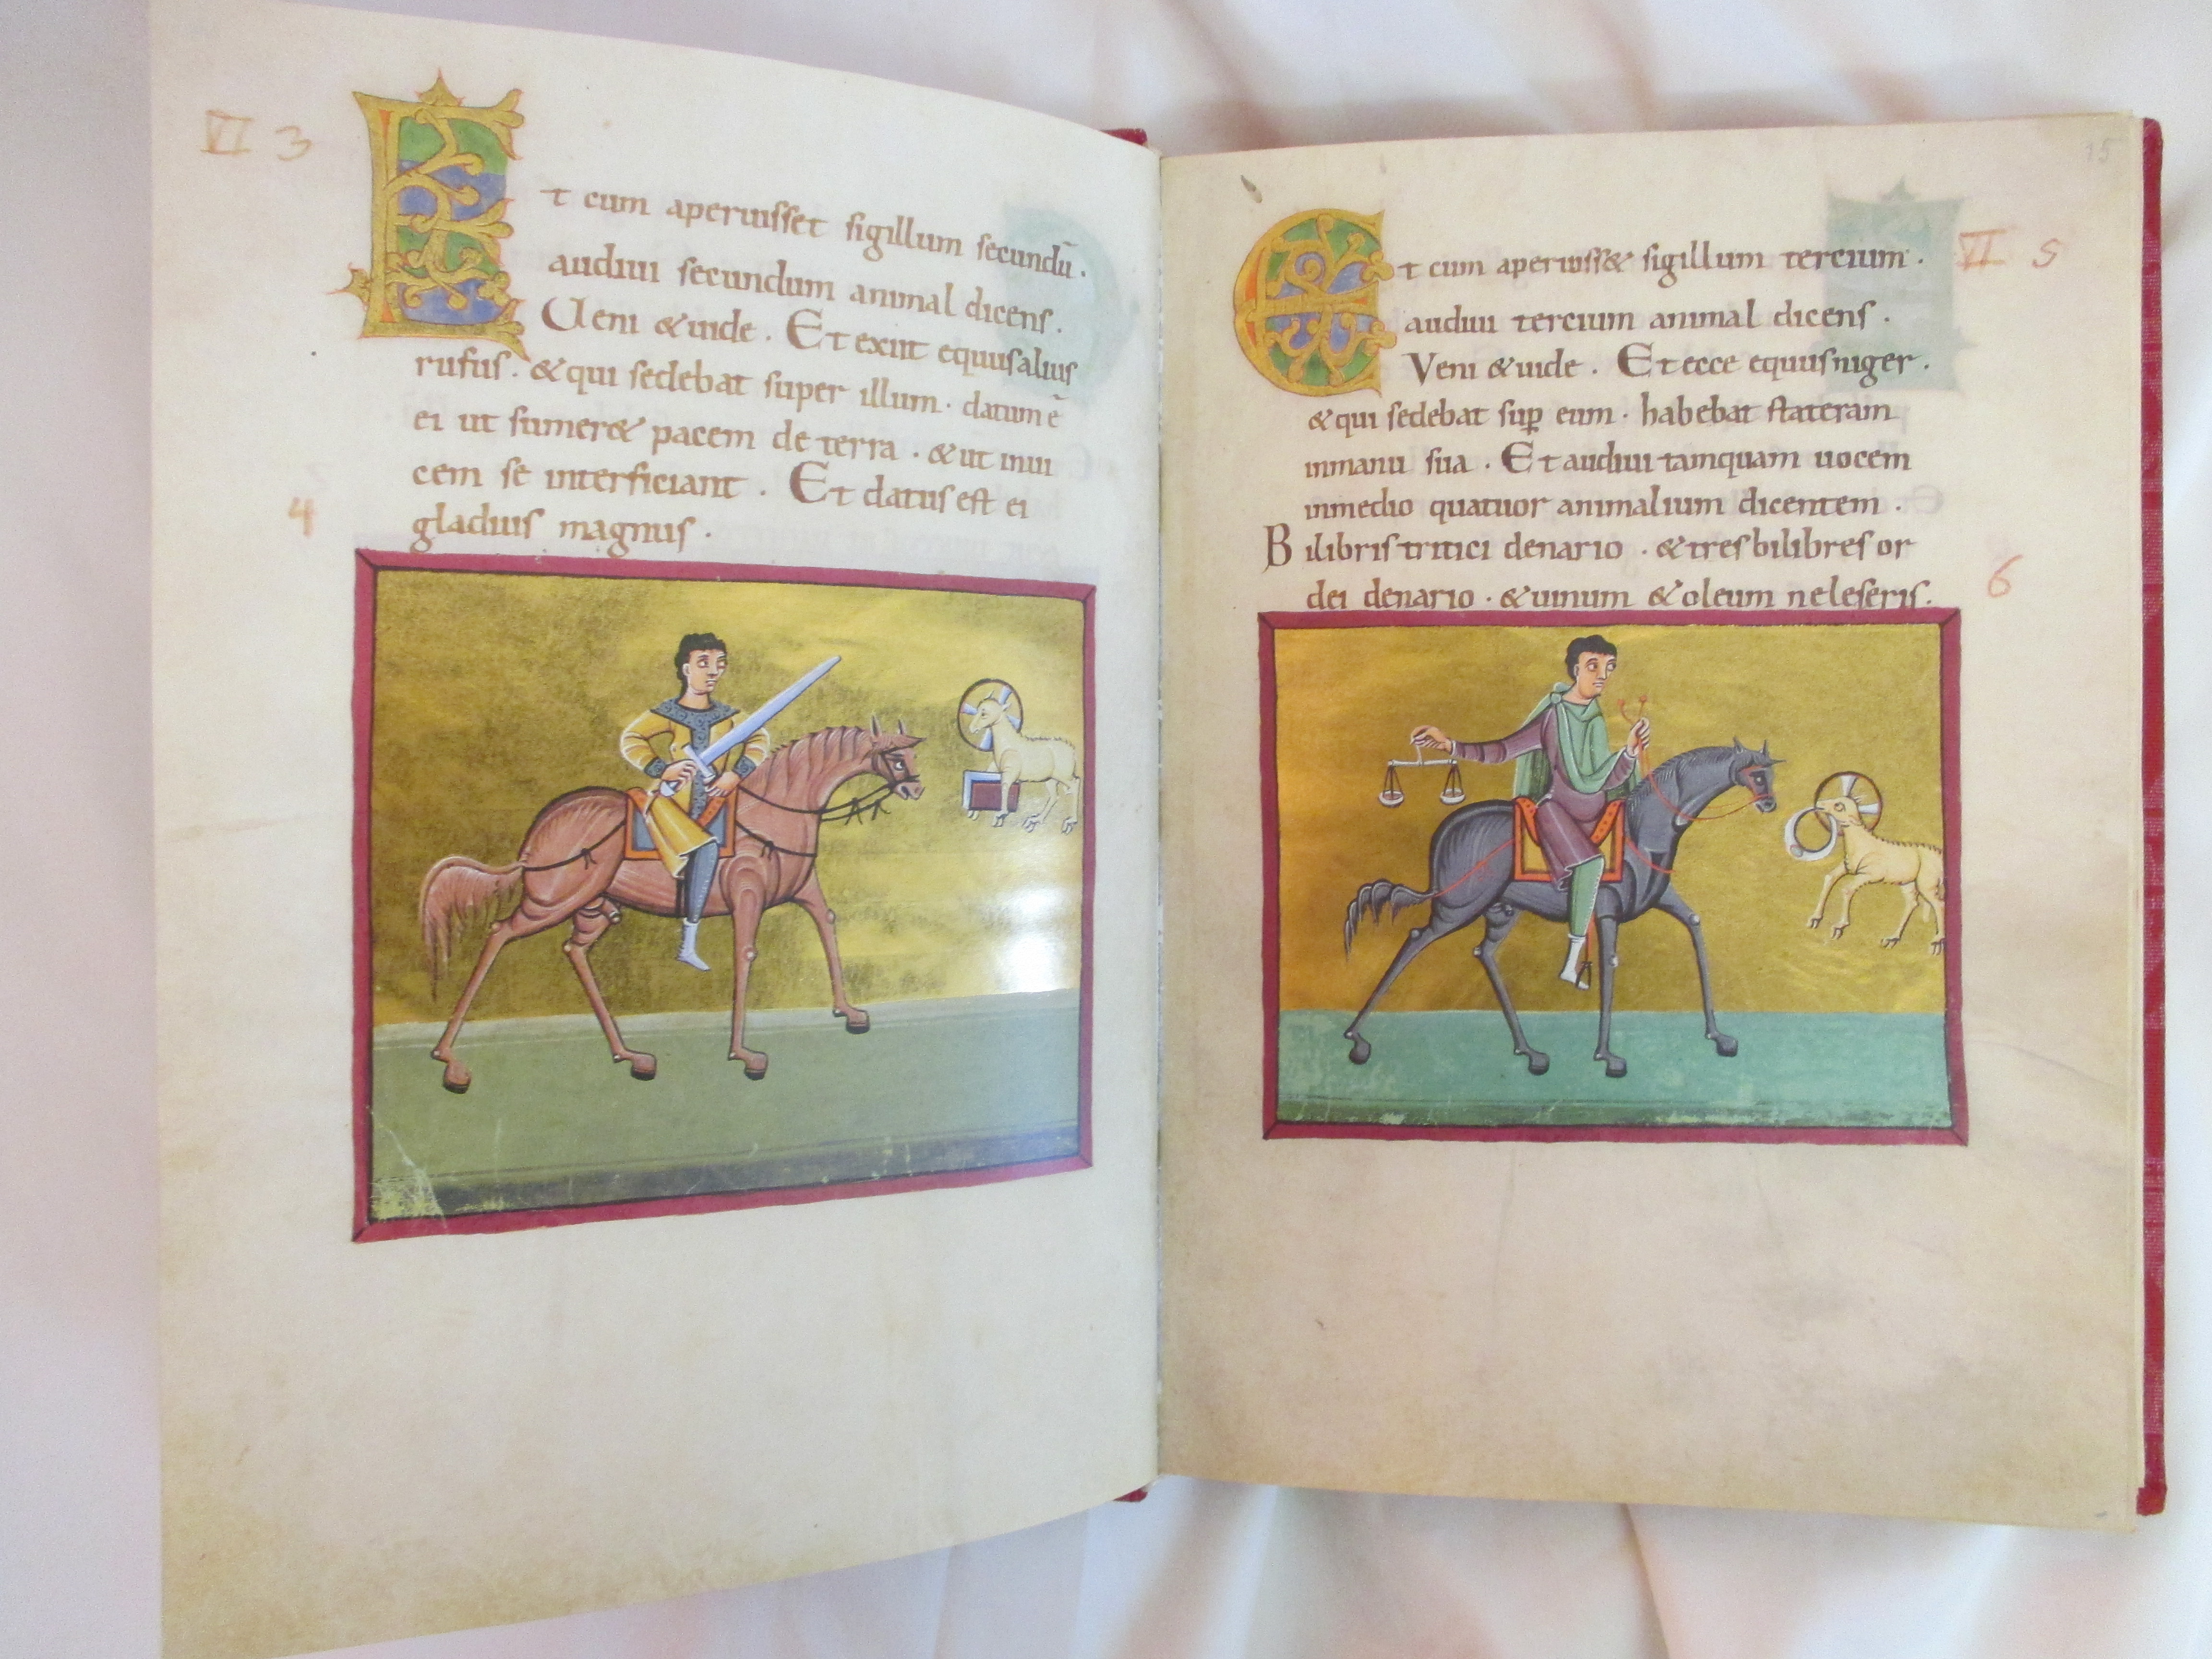 VI 3
Et cum aperuisset sigillum secundū .
audiui secundum animal dicens .
Ueni & uide . Et exiit equus alius
rufus . & qui sedebat super illum . datum ē
ei ut sumer& pacem de terra . & ut inui
cem se interficiant . Et datus est ei
4
gladius magnus .
15
Et cum aperuiss& sigillum tercium .
VI 5
audiui tercium animal dicens .
Veni & uide . Et ecce equus niger .
& qui sedebat suꝑ eum . habebat stateram
in manu sua . Et audiui tamquam uocem
in medio quatuor animalium dicentem .
Bilibris tritici denario . & tres bilibres or
dei denario . & uinum & oleum ne leseris .
6